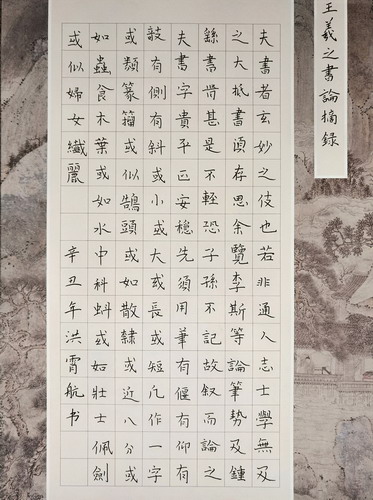 王羲之書論摘録
夫書者玄妙之伎也若非通人志士學無及
之大抵書須存思余覽李斯等論筆勢及鍾
繇書骨甚是不輕恐子孫不記故叙而論之
夫書字貴平正安穩先須用筆有偃有仰有
攲有側有斜或小或大或長或短凡作一字
或類篆籀或似鵠頭或如散隸或近八分或
如蟲食木葉或如水中科蚪或如壯士佩劍
或似婦女纖麗 辛丑年洪霄航书